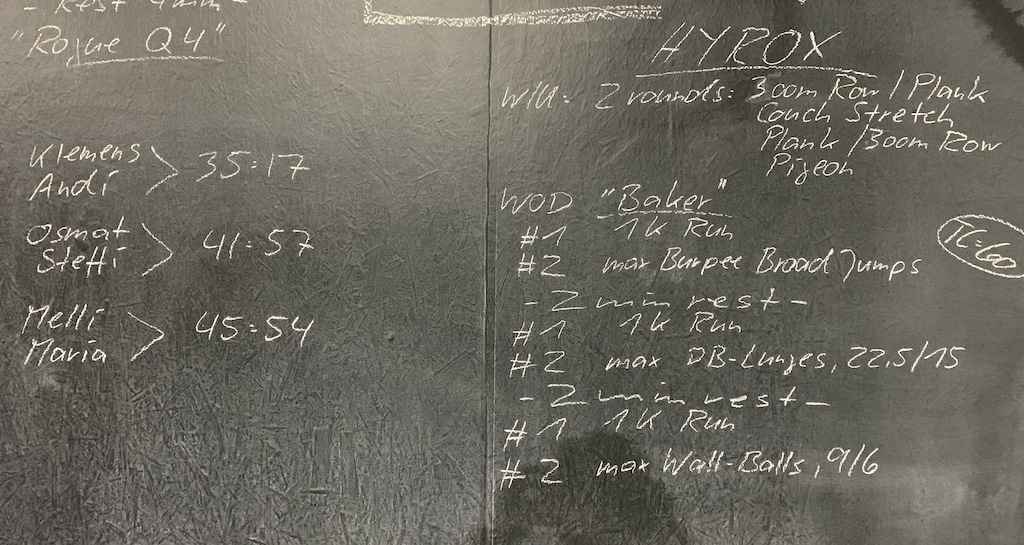 - Rest 4min -
"Rogue Q4"
Klemens
Andi > 35:17
Osmat
Steffi > 41:57
Melli
Maria > 45:54
HYROX
W/U: 2 rounds: 300m Row / Plank
Couch Stretch
Plank / 300m Row
Pigeon
WOD "Baker"
#1 1K Run
#2 max Burpee Broad Jumps
TC=60
- 2 min rest -
#1 1K Run
#2 max DB-Lunges, 22,5/15
- 2 min rest -
#1 1K Run
#2 max Wall-Balls, 9/6